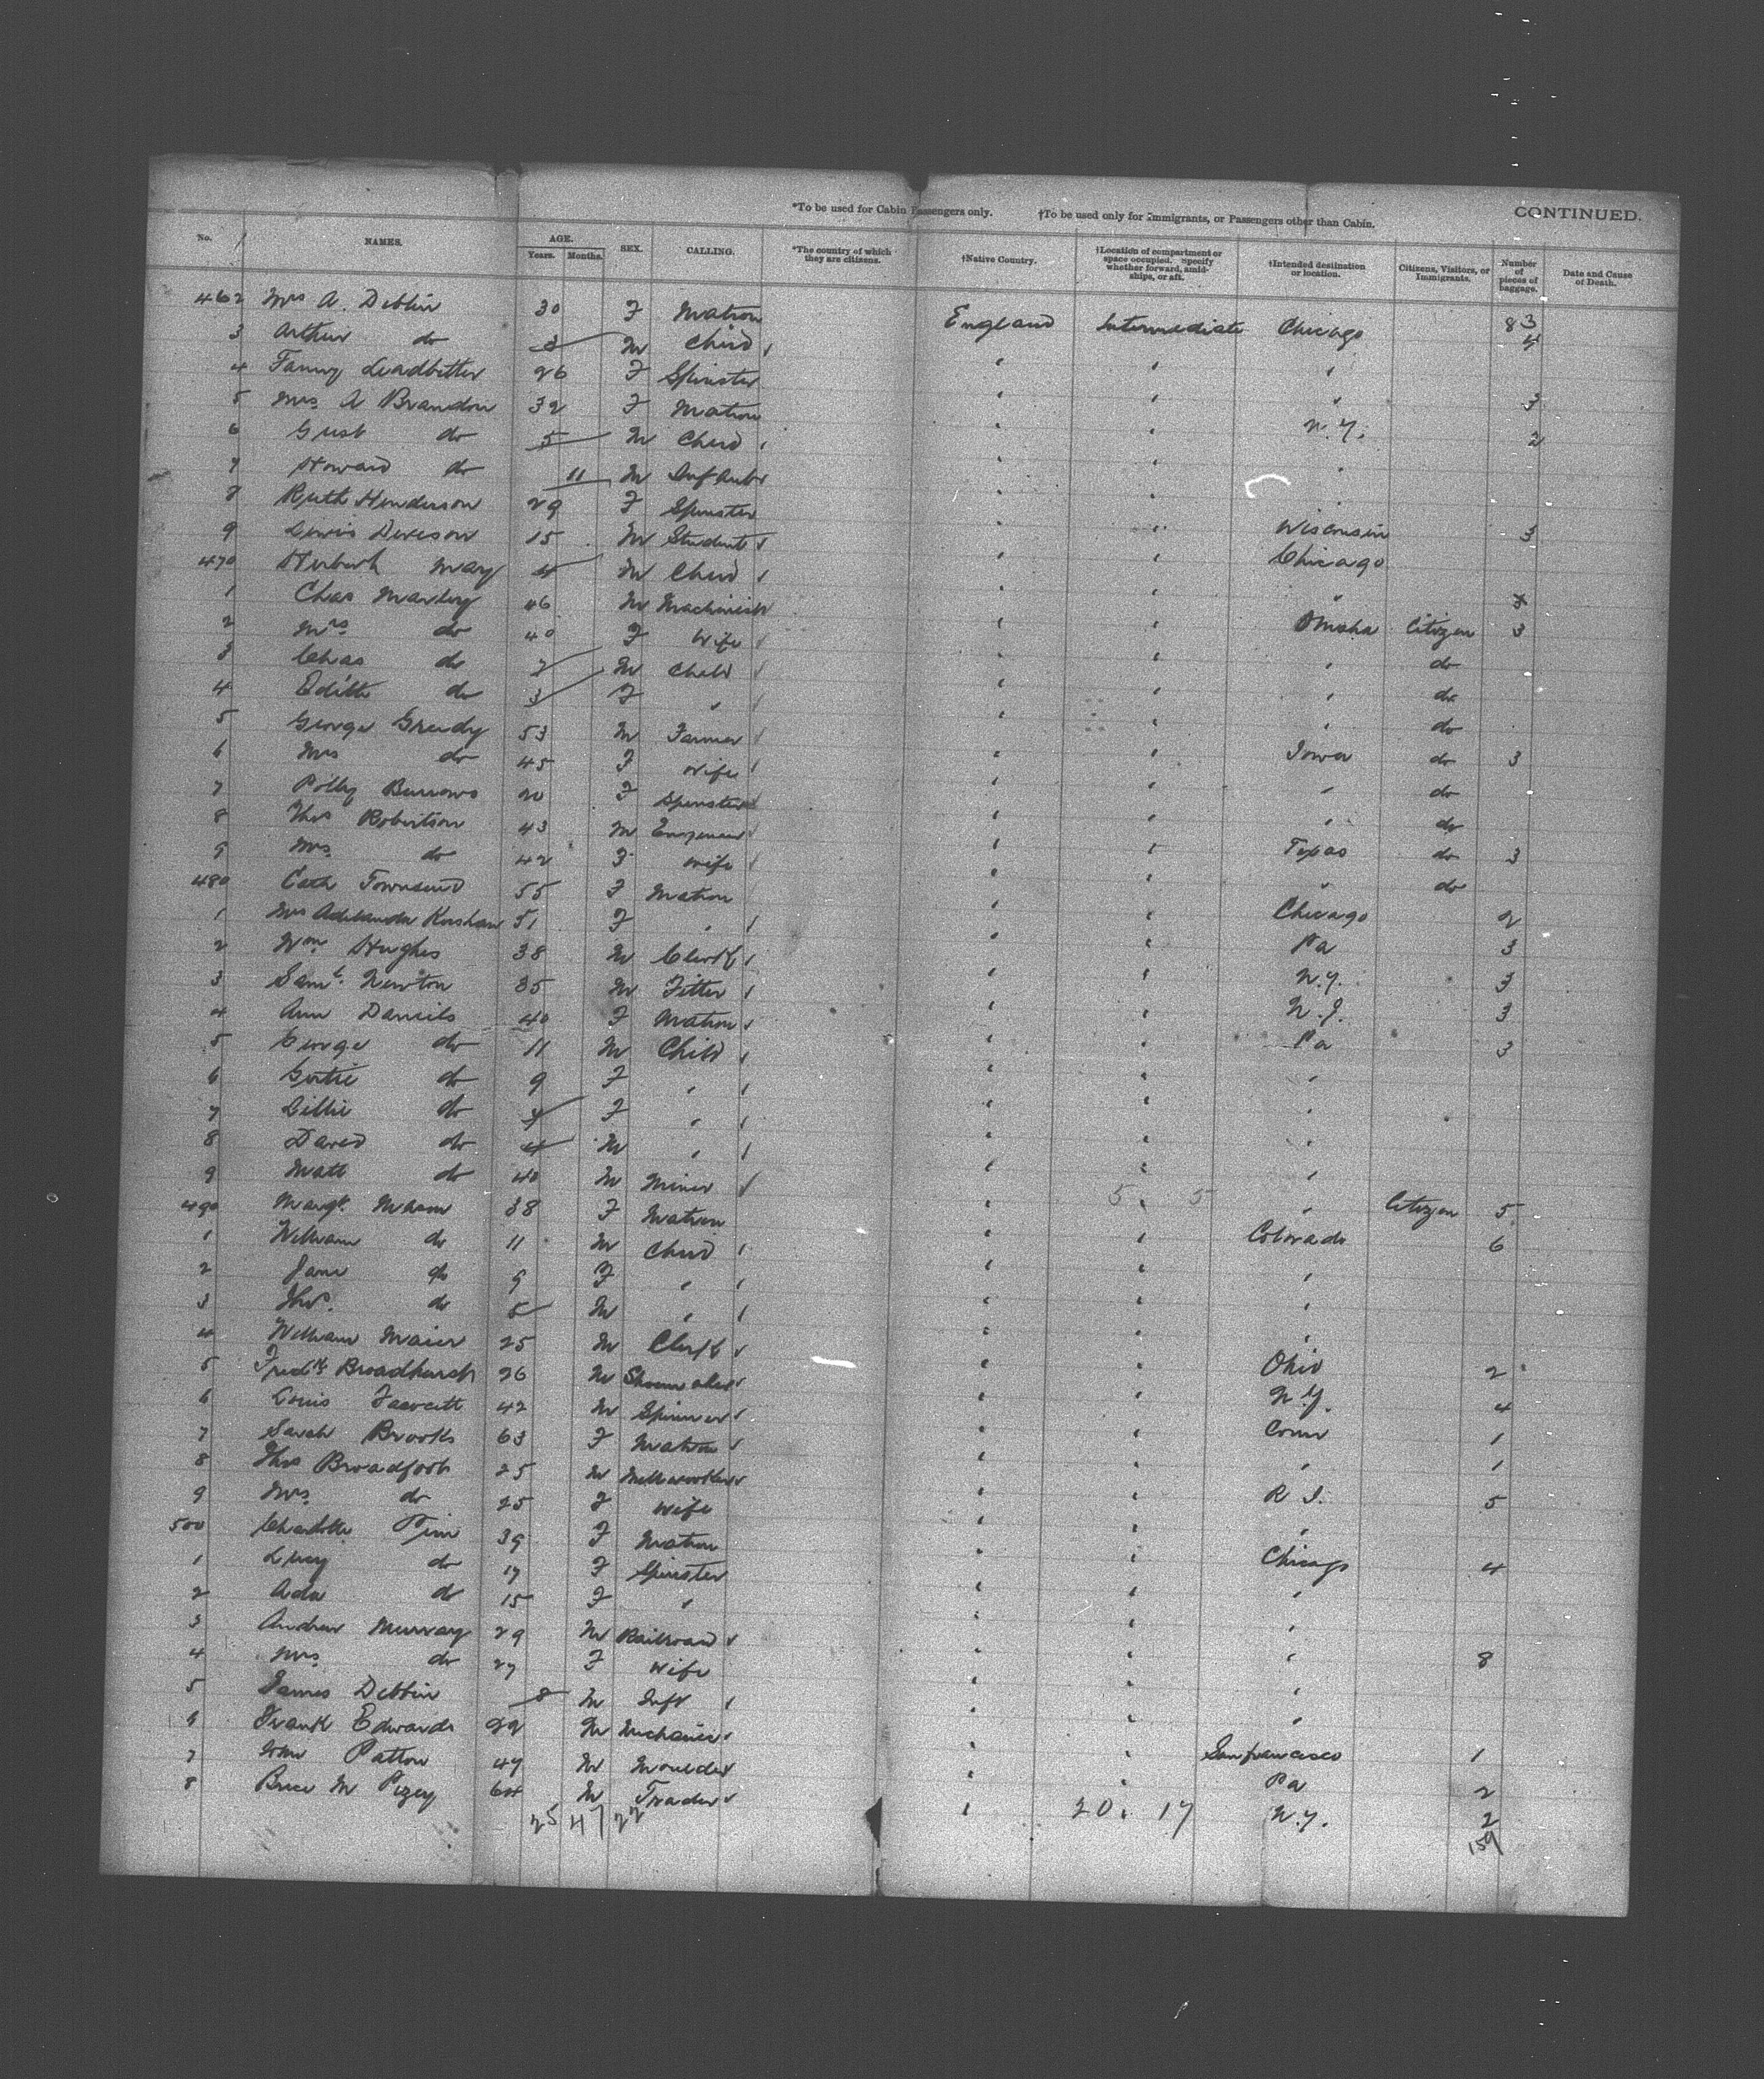 *To be used for Cabin Passengers only. †To be used only for Immigrants, or Passengers other than Cabin. CONTINUED.
No. NAMES. AGE. Years. Months. SEX. CALLING. *The country of which they are citizens. †Native Country. †Location of compartment or space occupied. Specify whether forward, amidships, or aft. †Intended destination or location. Citizens, Visitors, or Immigrants. Number of pieces of baggage. Date and Cause of Death.
462 Mrs A. Deblin 30 F Matron England Intermediate Chicago
3 Arthur do M Child
4 Fanny Leadbitter 26 F Spinster " " "
5 Mrs. A Brandon 32 F Matron " " " 3
6 Gust do 5 M Child " " N.Y. 2
7 Howard do 11 M Infant " " "
8 Ruth Henderson 29 F Spinster " " "
9 Lewis 15 M Student " " Wisconsin 3
470 May 4 M Child " " Chicago
1 Chas 46 M Machinist " " "
2 Mrs. do 40 F Wife " " Omaha Citizen 3
3 Chas do M Child " " " do
4 Edith do 3 F " " " " do
5 George 53 M Farmer " " " do
6 Mrs do 45 F Wife " " Iowa do 3
7 Polly Burrows 20 F Spinster " " " do
8 Thos Robertson 43 M Engineer " " " do
9 Mrs. do 42 F Wife " " Texas do 3
480 Cath Townsend 55 F Matron " " " do
1 Mrs Kershaw 51 F " " " Chicago 2
2 Wm Hughes 38 M Clerk " " Pa 3
3 Saml. Newton 35 M Fitter " " N.Y. 3
4 Ann Daniels 40 F Matron " " N.J. 3
5 George do 11 M Child " " Pa 3
6 Gertie do 9 F " " " "
7 Lillie do F " " " "
8 David do 4 M " " " "
9 Matt do 40 M Miner " " "
490 Margt. Mason 38 F Matron " 5 " 5 " Citizen 5
1 William do 11 M Child " " Colorado 6
2 Jane do 9 F " " " "
3 Thos. do 5 M " " " "
4 William Maier 25 M Clerk " " "
5 Fredk Broadhurst 26 M Shoemaker " " Ohio 2
6 Louis Fawcett 42 M Spinner " " N.Y. 4
7 Sarah Brooks 63 F Matron " " Conn 1
8 Thos Broadfoot 25 M Millworker " " " 1
9 Mrs. do 25 F Wife " " R I. 5
500 Charlotte Pim 39 F Matron " " "
1 Lucy do 17 F Spinster " " Chicago 4
2 Ada do 15 F " " " "
3 Andrew Murray 29 M Railroad " " "
4 Mrs. do 27 F Wife " " " 8
5 James Deblin 8 M Inft " " "
6 Frank Edwards 22 M Mechanic " " "
7 John Patton 47 M Moulder " " San francisco 1
8 M 64 M Trader " " Pa 2
25 47 22 " 20 " 17 N.Y. 2
159